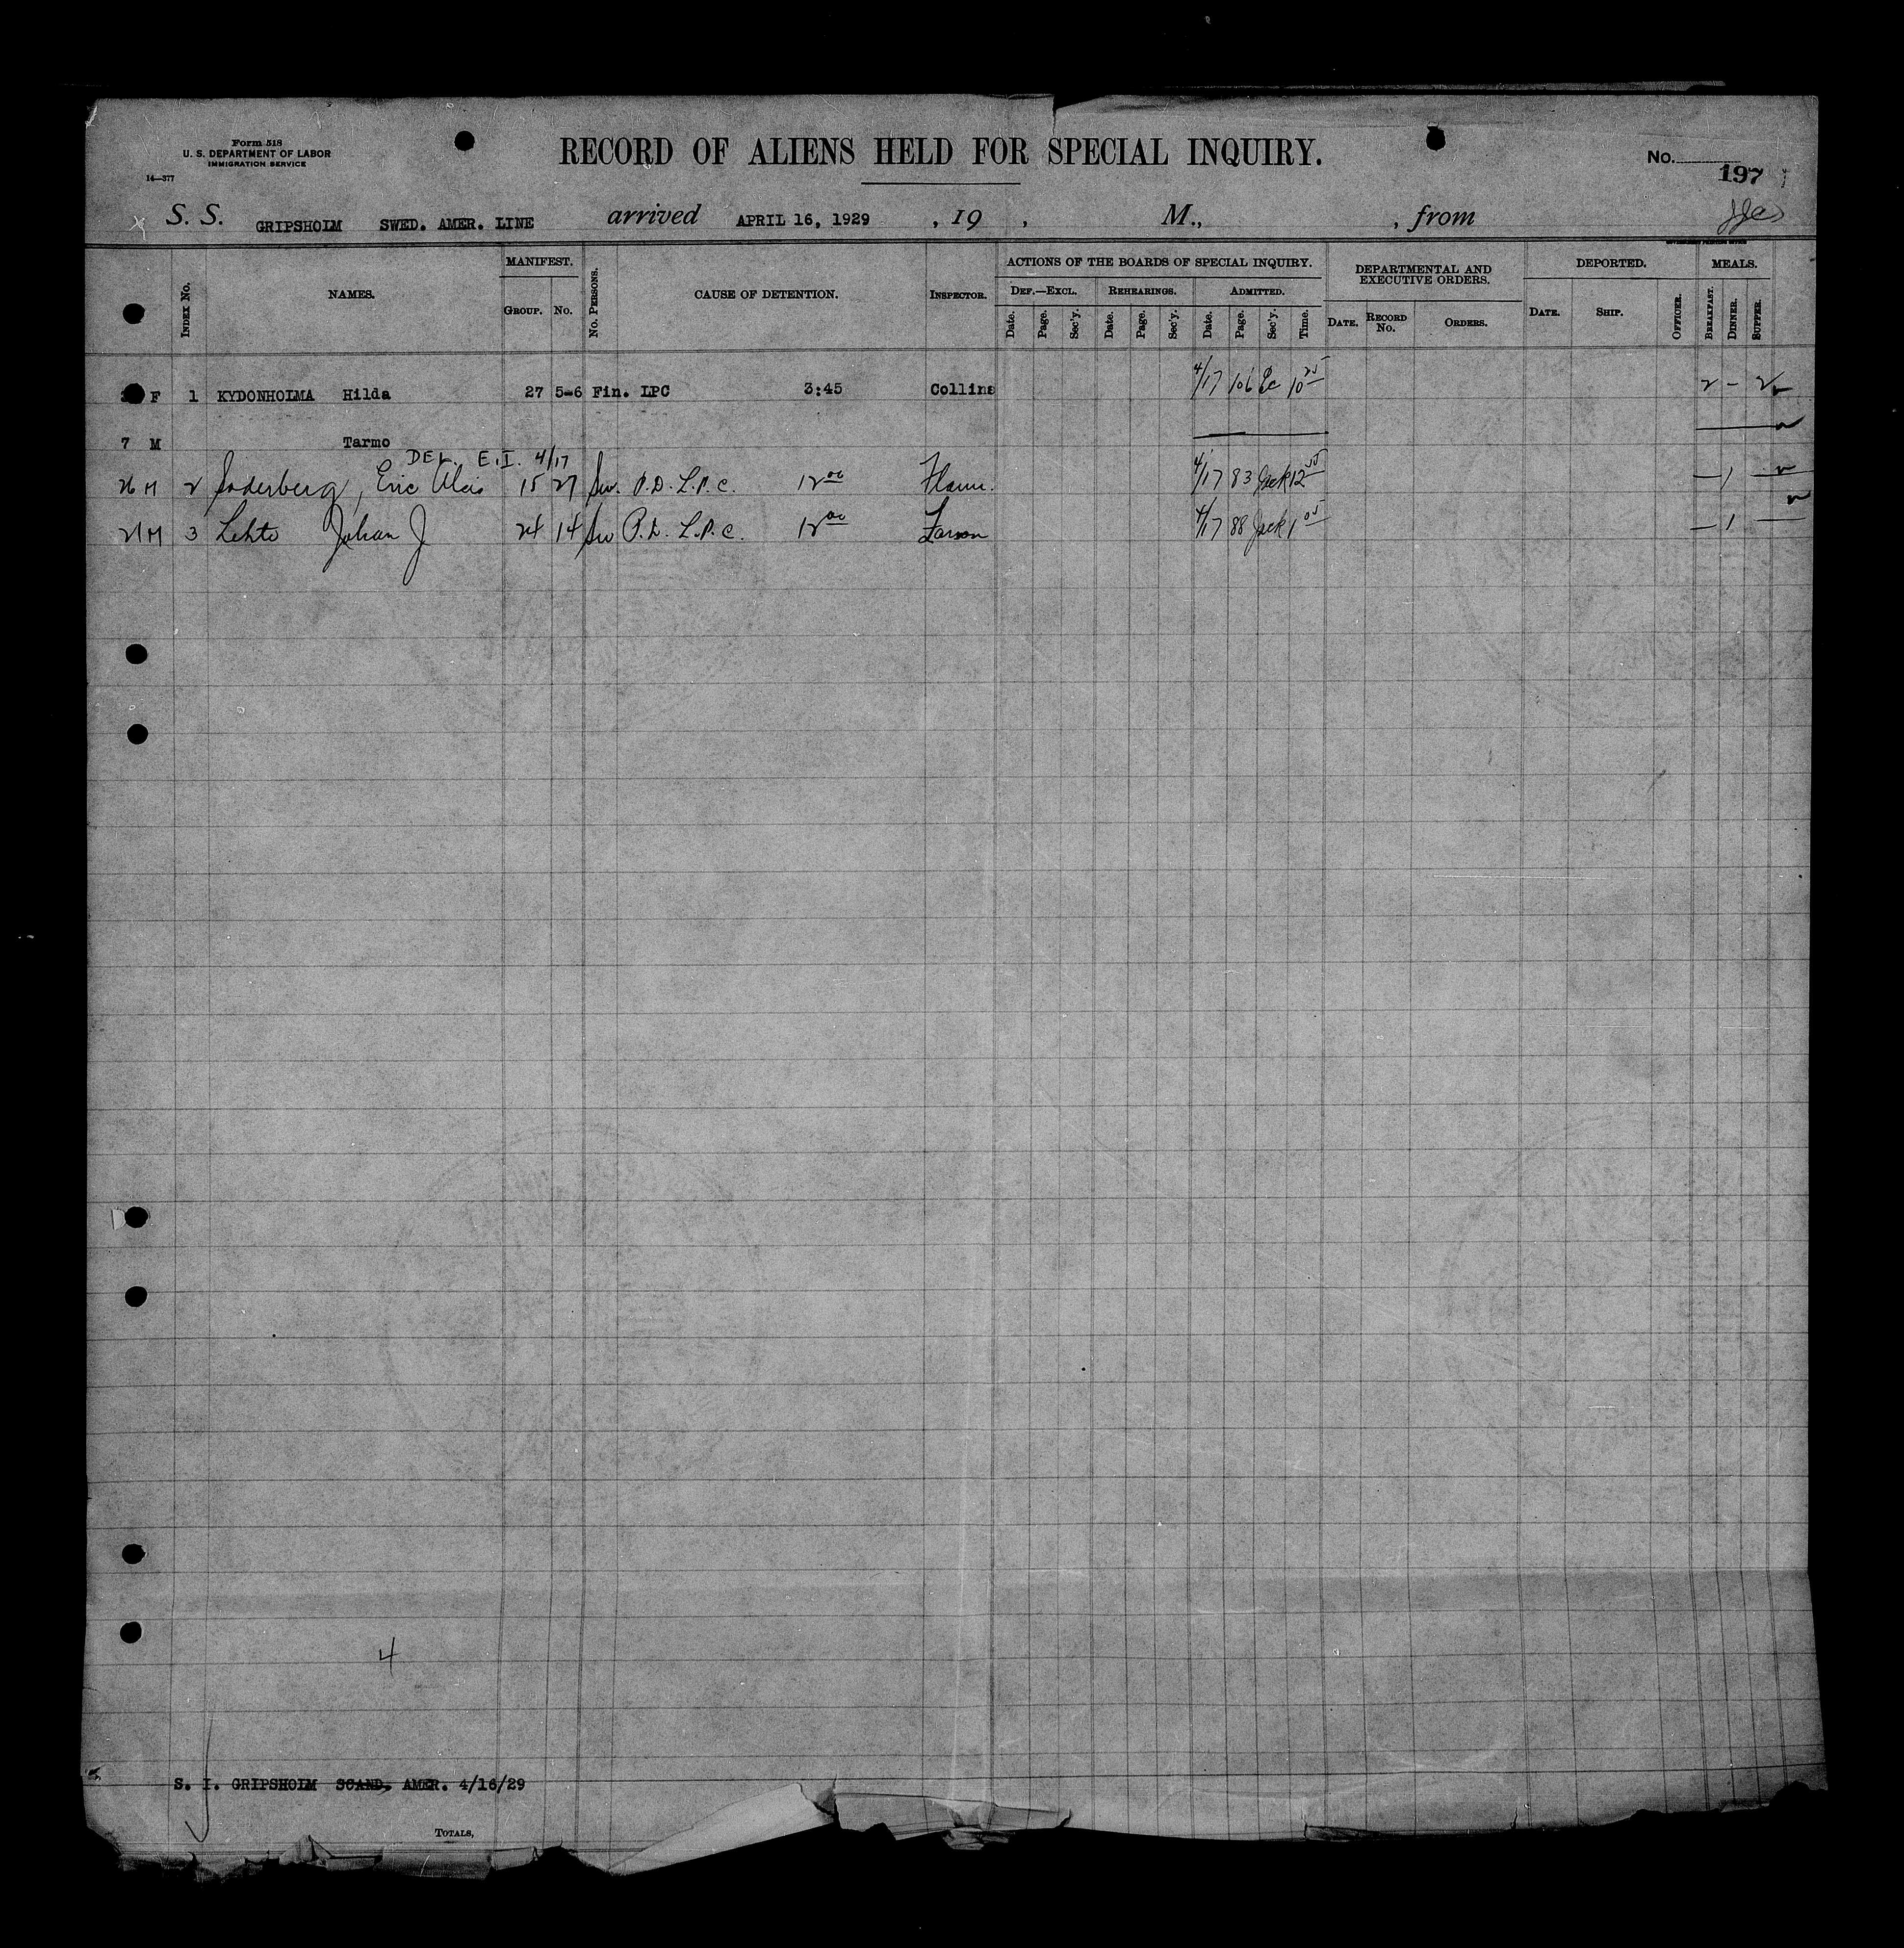 Form 518
U. S. DEPARTMENT OF LABOR
IMMIGRATION SERVICE
14—377
RECORD OF ALIENS HELD FOR SPECIAL INQUIRY.
No.
197
S. S. GRIPSHOLM SWED. AMER. LINE arrived APRIL 16, 1929 , 19 , M., , from
INDEX No.
NAMES.
MANIFEST.
GROUP. No.
No. PERSONS.
CAUSE OF DETENTION.
INSPECTOR.
ACTIONS OF THE BOARDS OF SPECIAL INQUIRY.
DEF.—EXCL. REHEARINGS. ADMITTED.
Date. Page. Sec'y. Date. Page. Sec'y. Date. Page. Sec'y. Time.
DEPARTMENTAL AND
EXECUTIVE ORDERS.
DATE. RECORD No. ORDERS.
DEPORTED.
DATE. SHIP. OFFICER.
MEALS.
BREAKFAST. DINNER. SUPPER.
F 1 KYDONHOLMA Hilda 27 5-6 Fin. LPC 3:45 Collins 4/17 106 10 25 2 – 2
7 M Tarmo
DEL. E.I. 4/17
26 M 2 Soderberg, Eric Alois 15 27 Sw. P.D. L.P.C. 12 00 4/17 83 Jack 12 55 – 1 –
21 M 3 Lehto Johan J 24 14 Sw P.D. L.P.C. 12 00 Larson 4/17 88 Jack 1 05 – 1 –
4
S. I. GRIPSHOLM SCAND. AMER. 4/16/29
TOTALS,